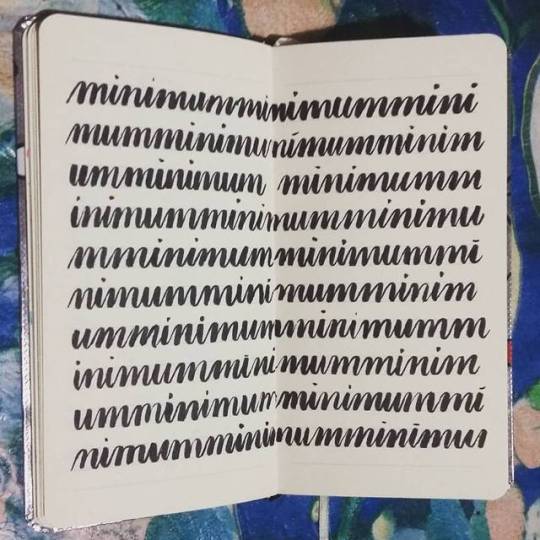 minimumminimummini
mumminimunimumminim
umminimum minimumm
inimumminimumminimu
mminimumminimummi
nimumminimumminim
umminimumminimumm
inimumminimumminim
umminimumminimummi
nimumminimumminimu